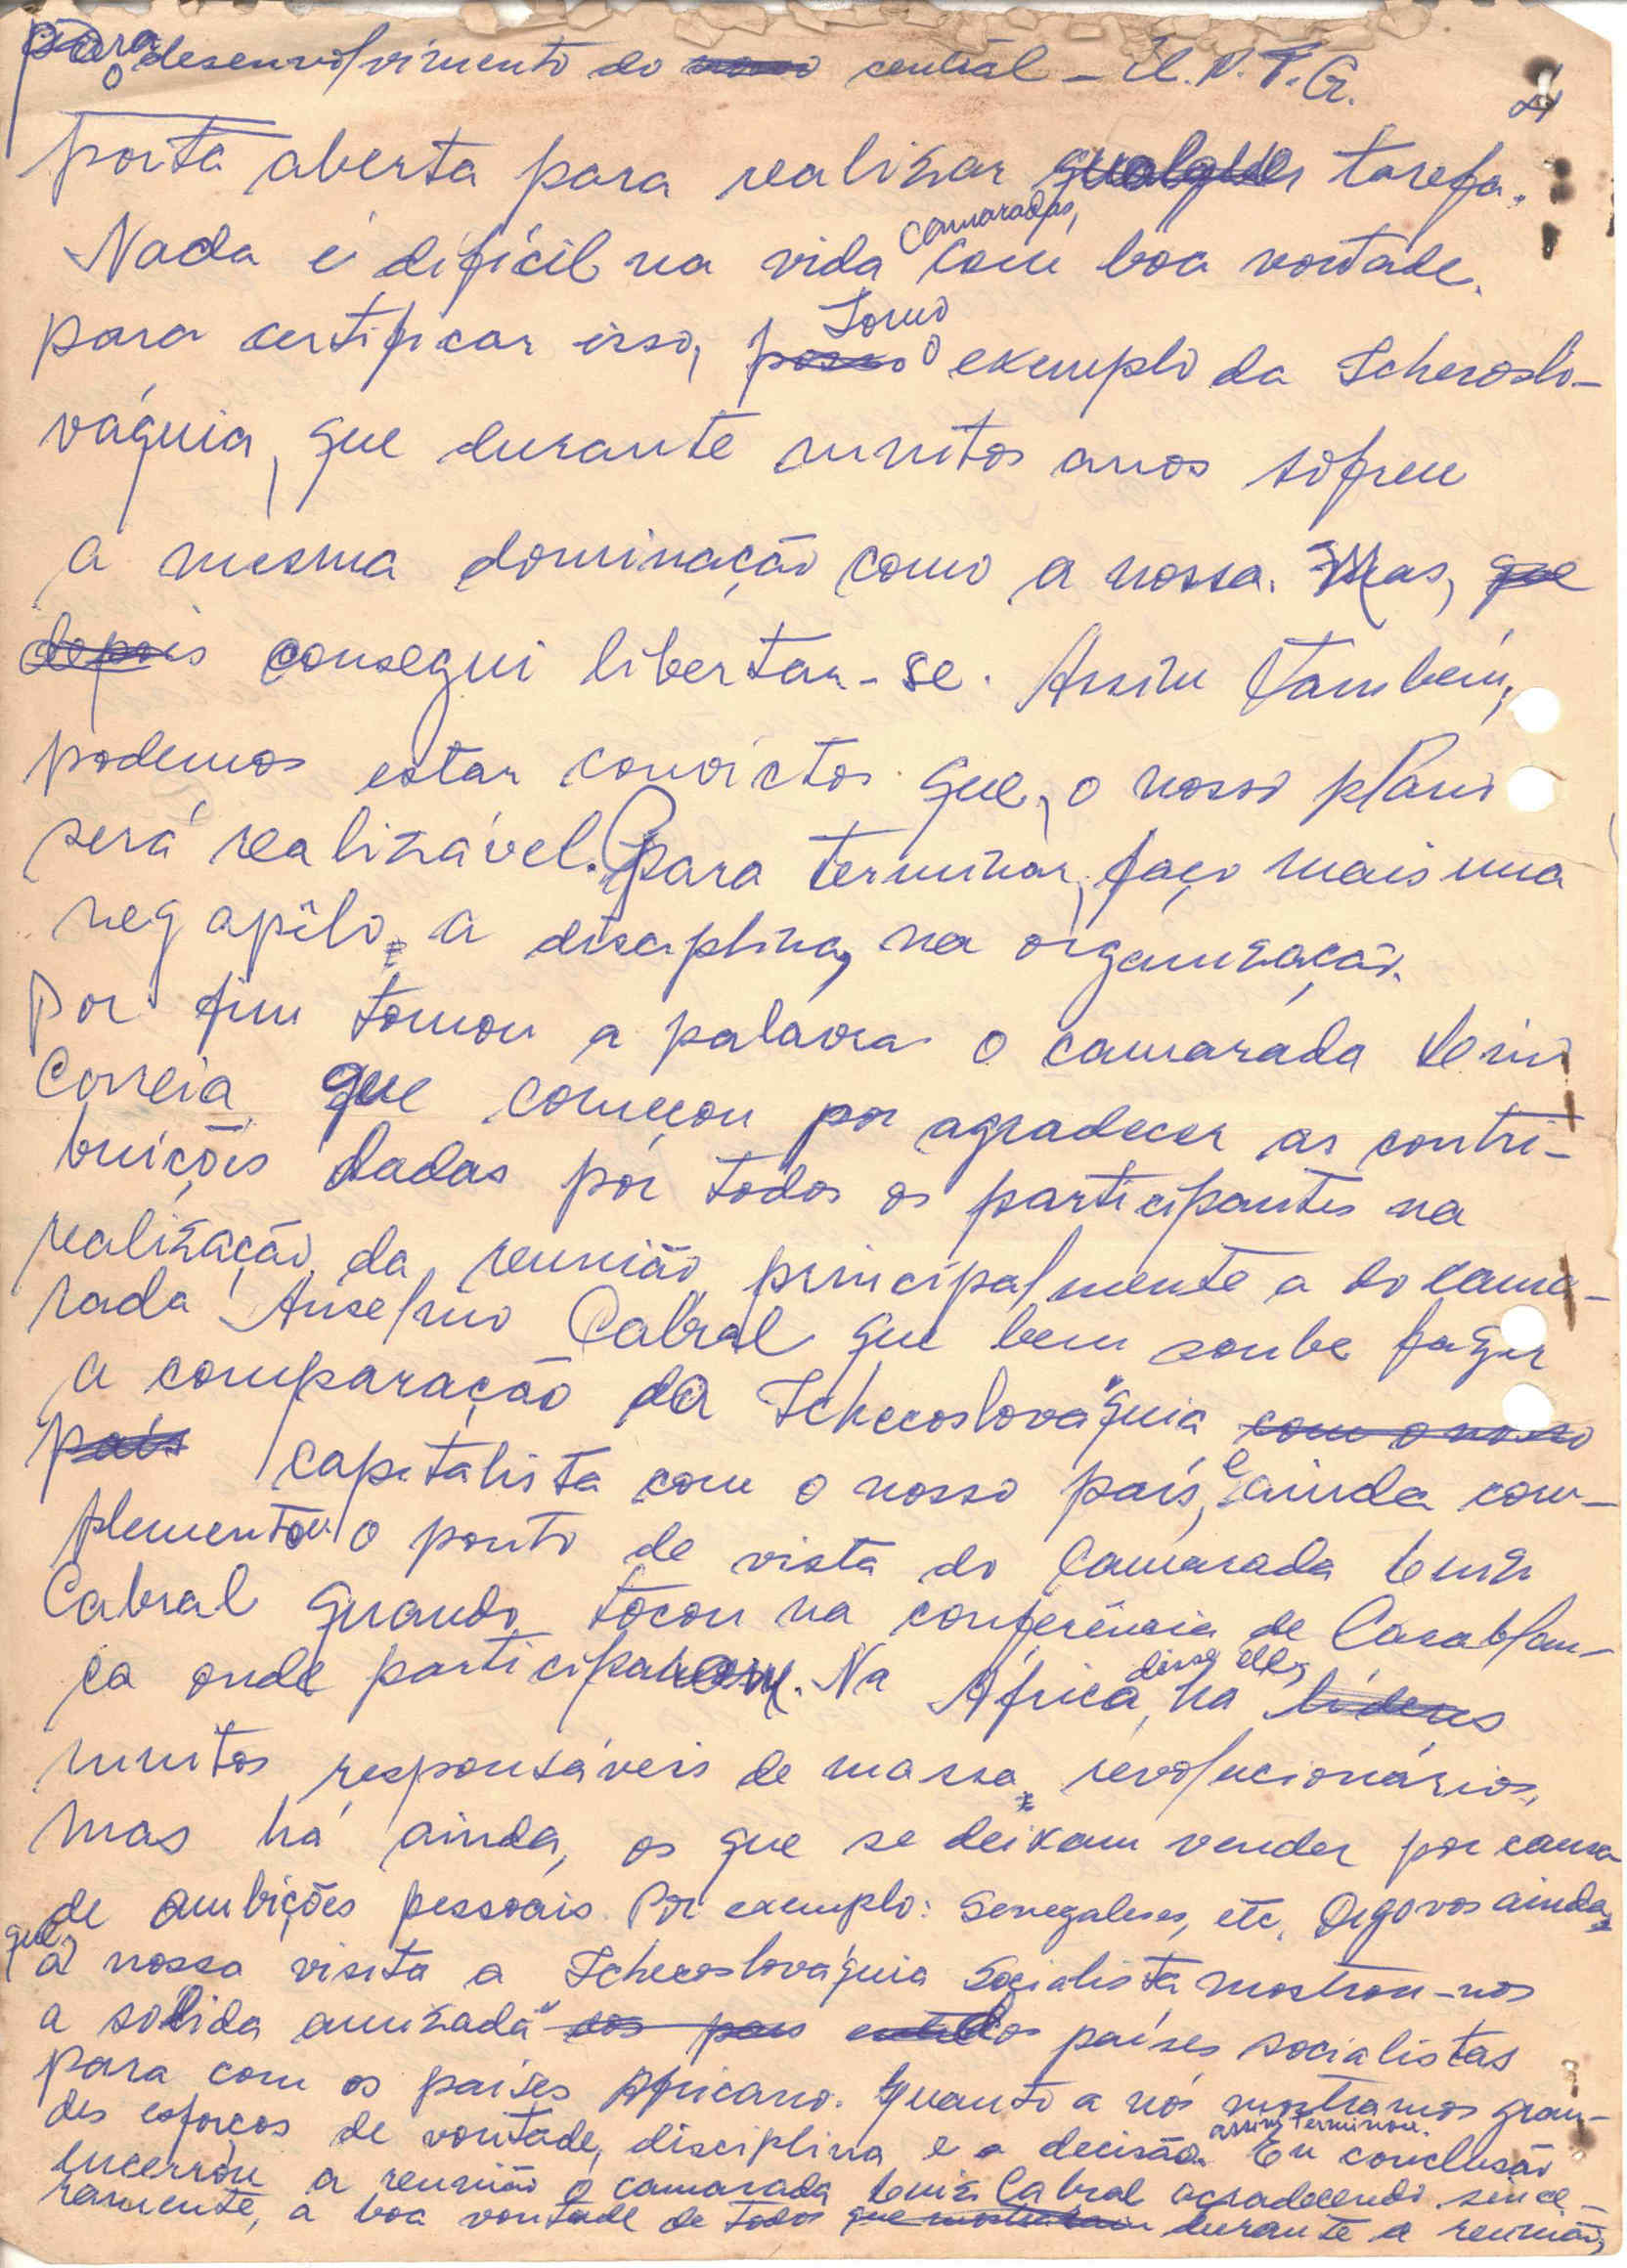 para o desenvolvimento do central - U.N.T.G.
4
porta aberta para realizar qualquer tarefa.
Nada é difícil na vida camaradas, com boa vontade.
para certificar isso, posso Tomo o exemplo da Tchecoslo-
váquia, que durante muitos anos sofreu
a mesma dominação como a nossa. Mas, que
depois consegui libertar-se. Assim também,
podemos estar convictos que, o nosso plano
será realizável. Para terminar, faço mais uma
vez apêlo, a disciplina, na organização.
Por fim tomou a palavra o camarada
Correia que começou por agradecer as contri-
buições dadas por todos os participantes na
realização da reunião principalmente a do cama-
rada Anselmo Cabral que bem soube fazer
a comparação da Tchecoslováquia com o nosso
país capitalista com o nosso país, e ainda com-
plementou o ponto de vista do Camarada Luiz
Cabral quando tocou na conferência de Casablan-
ca onde participaram. Na África, disse ele, há líderes
muitos responsáveis de massa, revolucionários,
mas há ainda, os que se deixam vender por causa
de ambições pessoais. Por exemplo: Senegaleses, etc. Digo vos ainda,
que a nossa visita a Tchecoslováquia Socialista mostrou-nos
a sólida amizada dos pais dos países socialistas
para com os países Africano. Quanto a nós mostramos gran-
des esforços de vontade, disciplina e a decisão. assim terminou. Em conclusão
encerrou a reunião o camarada Luiz Cabral agradecendo since-
ramente, a boa vontade de todos que mostraram durante a reunião,